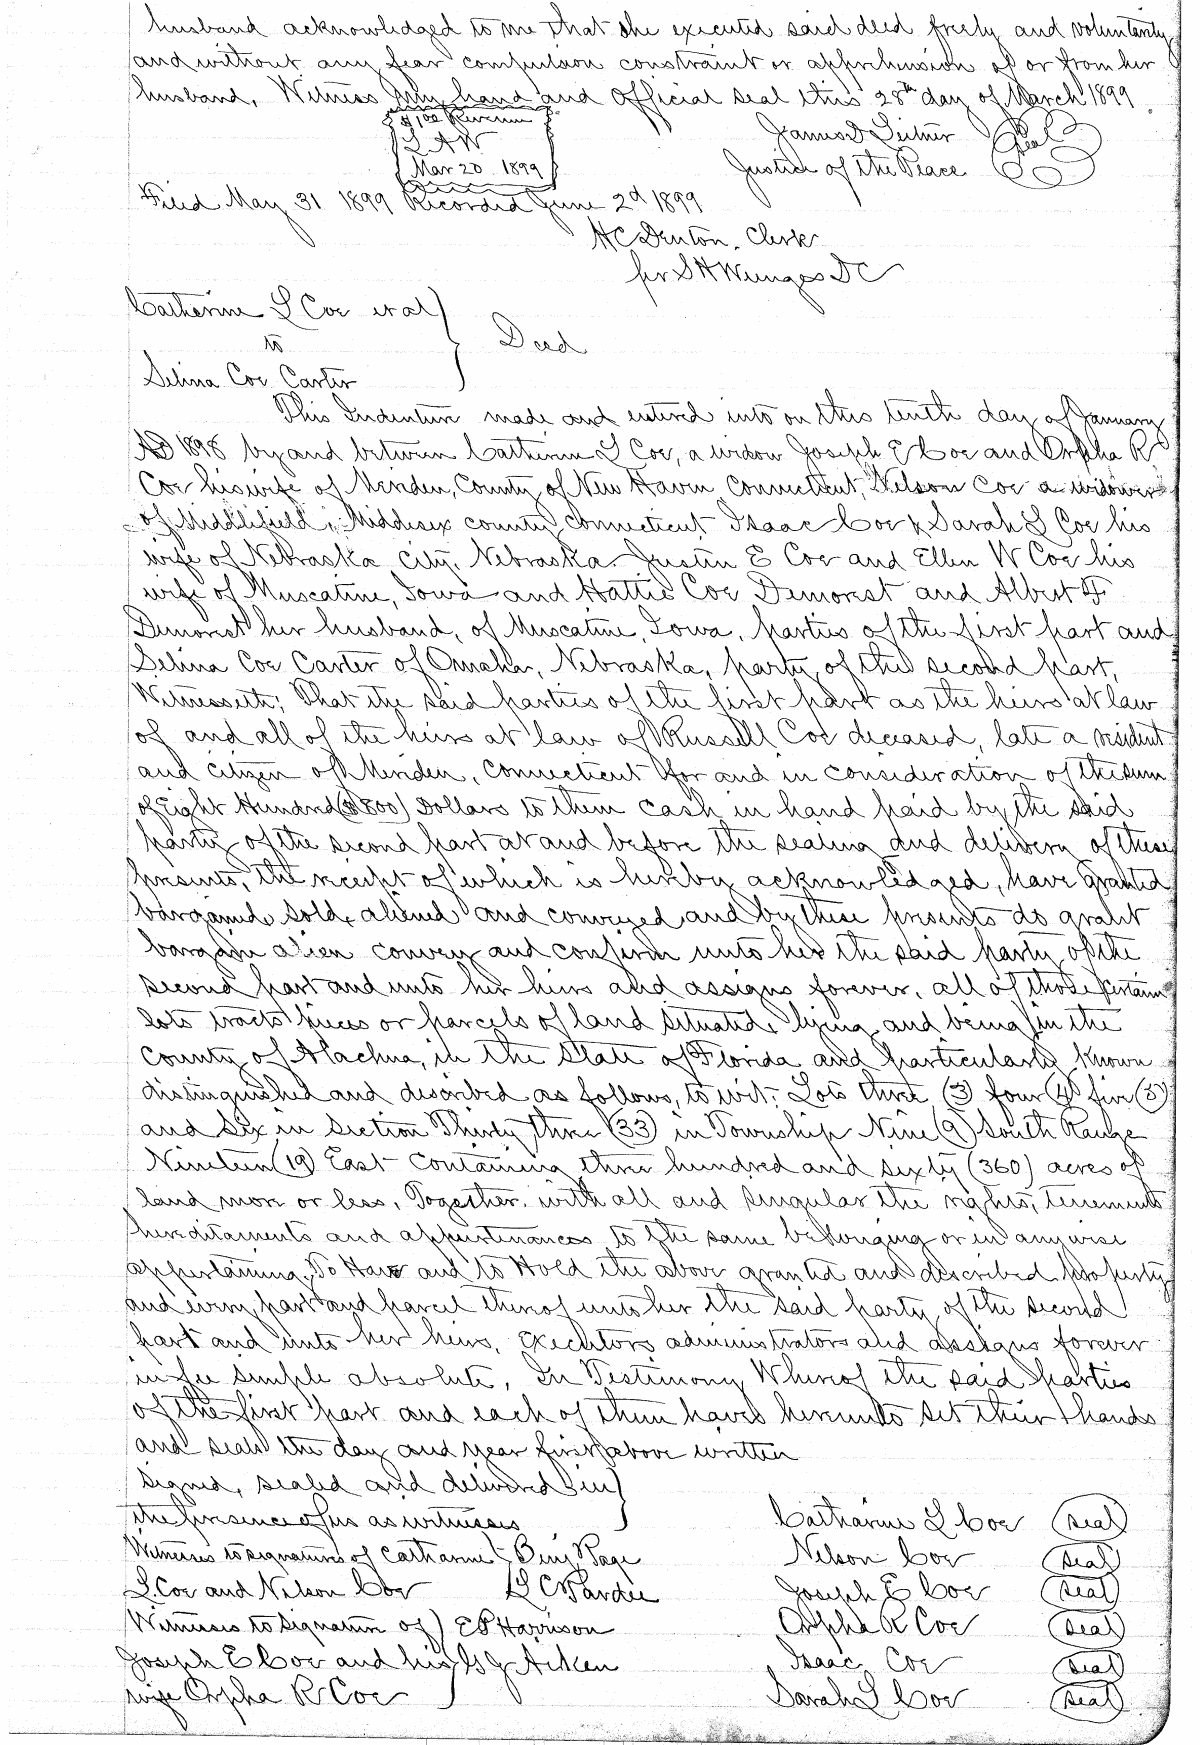 husband acknowledged to me that she executed said deed freely and voluntarily
and without any fear compulsion constraint or apprehension of or from her
husband, Witness My hand and Official seal this 28th day of March 1899
$1.00 Revenue
James D Leitner Seal
L A W
Mar 20 1899
Justice of the Peace
Filed May 31 1899 Recorded June 2d 1899
H C Denton, Clerk
per S H Wienges D C
Catherine L Coe et al
to
Deed
Selina Coe Carter
This Indenture made and entered into on this tenth day of January
AD 1898 by and between Catherine L Coe, a widow Joseph E Coe and Orpha R
Coe his wife of Meriden, County of New Haven Connecticut, Nelson Coe a widower
of Middlefield, Middlesex county Connecticut Isaac Coe & Sarah L Coe his
wife of Nebraska City, Nebraska. Justin E Coe and Ellen W Coe his
wife of Muscatine, Iowa and Hattie Coe Demorest and Albert F
Demorest her husband, of Muscatine, Iowa, parties of the first part and
Selina Coe Carter of Omaha, Nebraska, party of the second part,
Witnesseth; That the said parties of the first part as the heirs at law
of and all of the heirs at law of Russell Coe deceased, late a resident
and citizen of Meriden, Connecticut for and in consideration of the sum
of Eight Hundred ($800) Dollars to them cash in hand paid by the said
party of the second part at and before the sealing and delivery of these
presents, the receipt of which is hereby acknowledged, have granted
bargained, sold, aliened and conveyed and by these presents do grant
bargain alien convey and confirm unto her the said party of the
second part and unto her heirs and assigns forever, all of those certain
lots tracts pieces or parcels of land situated, lying and being in the
County of Alachua, in the State of Florida and particularly known
distinguished and described as follows, to wit: Lots three (3) four (4) five (5)
and six in section Thirty three (33) in Township Nine (9) South Range
Nineteen (19) East containing three hundred and sixty (360) acres of
land more or less, Together, with all and singular the rights, tenements
hereditaments and appurtenances to the same belonging or in anywise
appertaining, To Have and to Hold the above granted and described property
and every part and parcel thereof unto her the said party of the second
part and unto her heirs, executors administrators and assigns forever
in fee simple absolute, In Testimony Whereof the said parties
of the first part and each of them have hereunto set their hands
and seals the day and year first above written
signed, sealed and delivered in
the presence of us as witnesses Catharine L Coe seal
Witnesses to signatures of Catharine Benj Page Nelson Coe seal
L Coe and Nelson Coe L C Pardee Joseph E Coe seal
Witnesses to signature of E B Harrison Orpha R Coe seal
Joseph E Coe and his G J Aitken Isaac Coe seal
wife Orpha R Coe Sarah L Coe seal